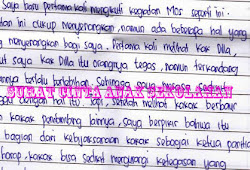 Saya baru pertama kali mengikuti kegiatan MOS seperti ini.
an ini cukup menyenangkan, namun ada beberapa hal yang
menyenangkan bagi saya. Pertama kali melihat kak Dilla,
ut saya kak Dilla itu orangnya tegas, namun terkadang
nya terlalu berlebihan. Sehingga
SURAT CINTA ANAK SEKOLAH
dengan hal itu. Tapi, setelah melihat kakak berbaur
kakak pendamping lainnya, saya berpikir bahwa itu
bagian dari kebijaksanaan kakak sebagai ketua
harap, kakak bisa sedikit mengurangi ketegasan yang